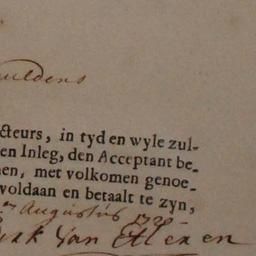 uldens
cteurs, in tyd en wyle zul-
en Inleg, den Acceptant be-
en, met volkomen genoe-
voldaan en betaalt te zyn,
Augustus 1720
van